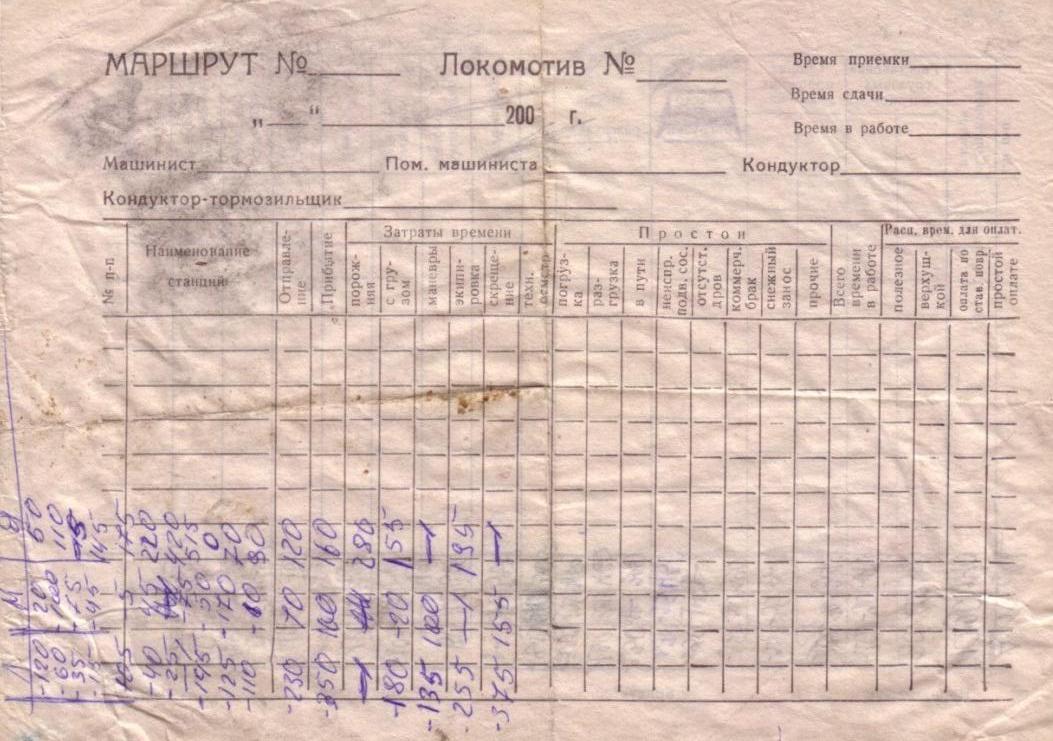 МАРШРУТ № Локомотив № Время приемки
Время сдачи
„ “ 200 г.
Время в работе
Машинист Пом. машиниста Кондуктор
Кондуктор-тормозильщик
№ п-п
Наименование станций
Отправле-ние
Прибытие
Затраты времени
порож-ния
с гру-зом
маневры
экипи-ровка
скреще-ние
техн. осмотр
Простои
погруз-ка
раз-грузка
в пути
неиспр. подв. сос.
отсутст. дров
коммерч. брак
снежный занос
прочие
Всего времени в работе
Расц. врем. для оплат.
полезное
верхуш-кой
оплата по
простой оплате
Л М Я
-120 -20 60
-60 110
-35 -75
-15 -45 145
5 175
-40 220
-25 420
-195 -50 0
-125 -170 70
-110 80
-230 70 120
-350 100 160
280
-180 -20 155
-135 100
-255 195
-375 155